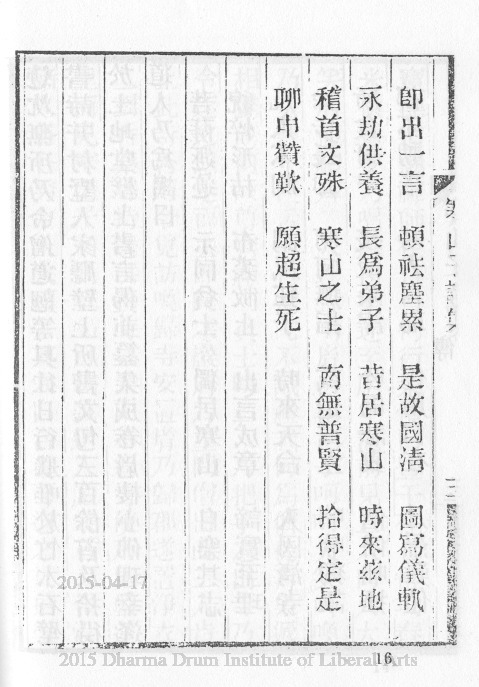 即出一言 頓祛塵累 是故國淸 圖寫儀軌
永劫供養 長爲弟子 昔居寒山 時來兹地
稽首文殊 寒山之士 南無普賢 拾得定是
聊申贊歎 願超生死
寒山子詩集
二
16
2015-04-17
2015 Dharma Drum Institute of Liberal Arts